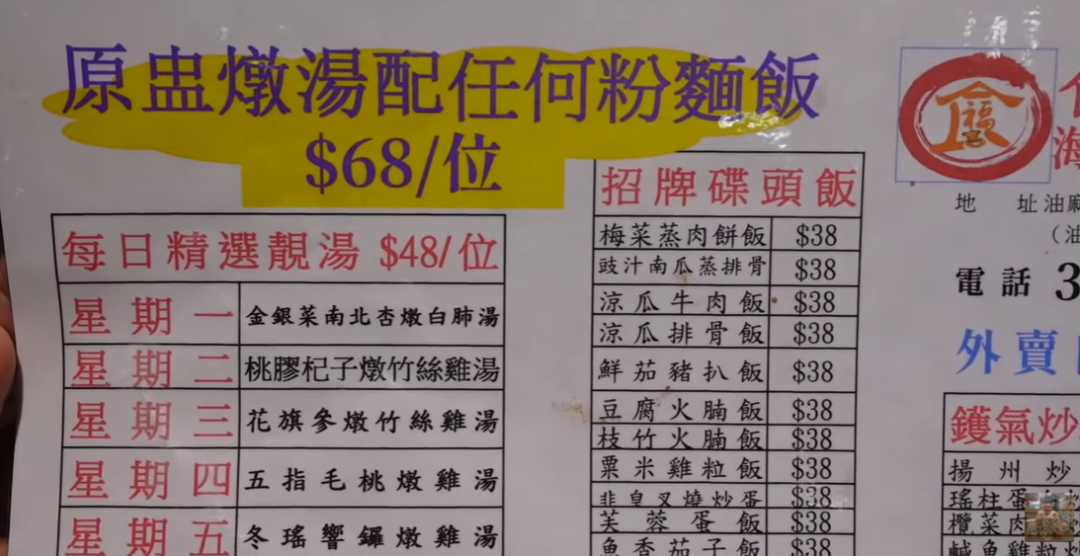 原盅燉湯配任何粉麵飯
$68/位
每日精選靚湯 $48/位
星期一 金銀菜南北杏燉白肺湯
星期二 桃膠杞子燉竹絲雞湯
星期三 花旗參燉竹絲雞湯
星期四 五指毛桃燉雞湯
星期五 冬瑤響鑼燉雞湯
招牌碟頭飯
梅菜蒸肉餅飯 $38
豉汁南瓜蒸排骨 $38
涼瓜牛肉飯 $38
涼瓜排骨飯 $38
鮮茄豬扒飯 $38
豆腐火腩飯 $38
枝竹火腩飯 $38
粟米雞粒飯 $38
韭皇叉燒炒蛋 $38
芙蓉蛋飯 $38
魚香茄子飯 $38
福
海
地址油麻
(油
電話 3
外賣
鑊氣炒
揚州炒
瑤柱蛋
欖菜肉
鹹魚雞粒